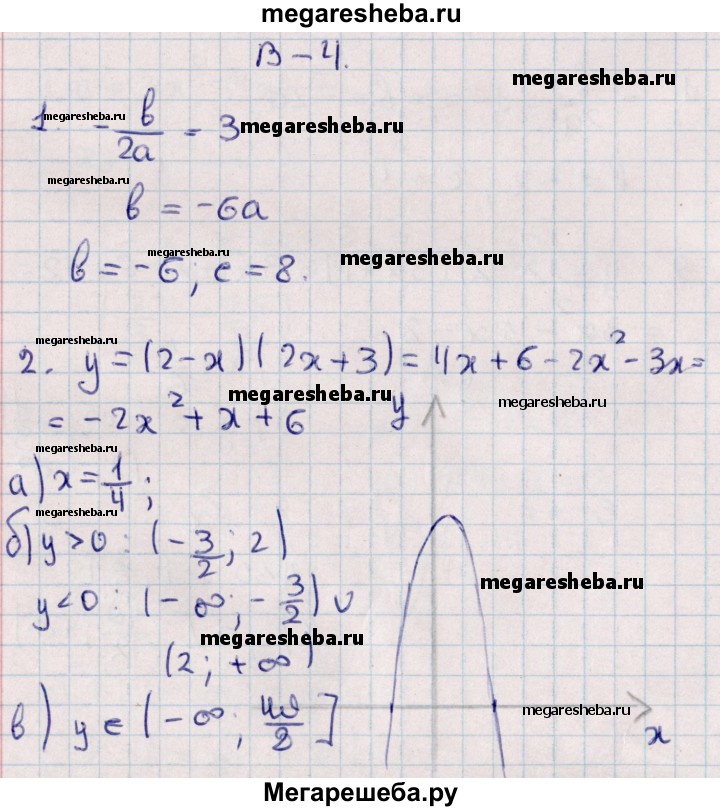 megaresheba.ru
В-4.
megaresheba.ru
1. -b/2a = 3 megaresheba.ru
megaresheba.ru
megaresheba.ru
b = -6a
b = -6; c = 8.
megaresheba.ru
megaresheba.ru
megaresheba.ru
2. y = (2-x)(2x+3) = 4x+6-2x²-3x=
megaresheba.ru
megaresheba.ru
= -2x²+x+6
y
а) x = 1/4;
megaresheba.ru
б) y>0: (-3/2; 2)
megaresheba.ru
y<0: (-∞; -3/2) ∪
megaresheba.ru
(2; +∞)
в) y ∈ (-∞; /8]
megaresheba.ru
x
Мегарешеба.ру